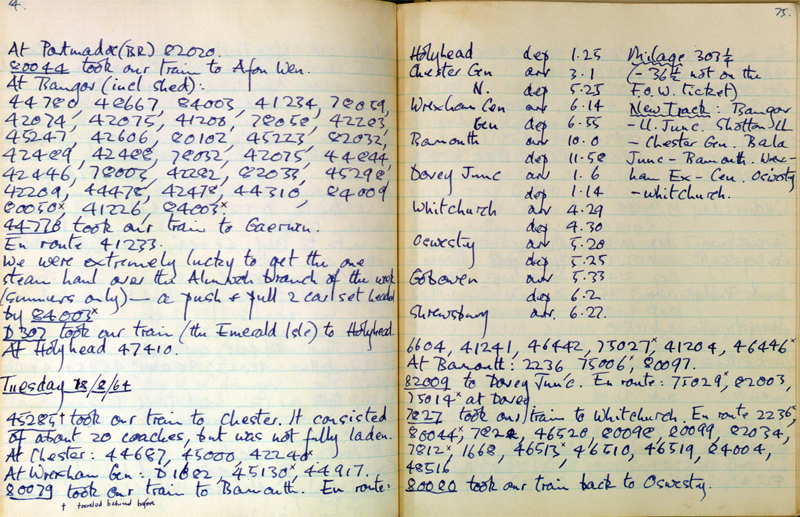 4.
At Portmadoc (BR) 82020.
80044 took our train to Afon Wen.
At Bangor (incl shed):
44780, 48667, 84003, 41234, 78059,
42074, 42075, 41200, 78058, 42283,
45247, 42606, 80102, 45223, 82032,
42489, 42488, 78032, 42075, 44844,
42446, 78003, 42282, 82033, 45298,
42209, 44478, 42478, 44310, 84009
80050ˣ, 41226, 84003ˣ
44770 took our train to Gaerwen.
En route 41233.
We were extremely lucky to get the one
steam haul over the Almwch branch of the week
(summers only) — a push & pull 2 car set headed
by 84003ˣ
D307 took our train (the Emerald Isle) to Holyhead.
At Holyhead 47410.
Tuesday 18/8/64
45285† took our train to Chester. It consisted
of about 20 coaches, but was not fully laden.
At Chester: 44687, 45000 42240ˣ
At Wrexham Gen: D1682, 45130ˣ, 44917.
80079 took our train to Barmouth. En route:
† traveled behind before
75.
Holyhead dep 1.25
Chester Gen arr 3.1
N. dep 5.25
Wrexham Cen arr 6.14
Gen dep 6.55
Barmouth arr 10.0
dep 11.58
Dovey Junc arr 1.6
dep 1.14
Whitchurch arr 4.29
dep 4.30
Oswestry arr 5.20
dep 5.25
Gobowen arr 5.33
dep 6.2
Shrewsbury arr. 6.27.
Milage 303¼
(- 36½ not on the
F.O.W. ticket)
New Track: Bangor
- Ll. Junc. Shotton LL
- Chester Gen. Bala
Junc - Barmouth. Wrex-
ham Ex - Cen. Oswestry
- Whitchurch.
6604, 41241, 46442, 75027ˣ, 41204, 46446ˣ
At Barmouth: 2236 75006ˣ, 80097.
82009 to Dovey Junc. En route: 75029ˣ, 82003,
75014ˣ at Dovey
7827 took our train to Whitchurch. En route 2236ˣ,
80044ˣ, 7828, 46520, 80098, 80099, 82034,
7812ˣ, 1668, 46513ˣ, 46510, 46519, 84004,
48516
80080 took our train back to Oswestry.